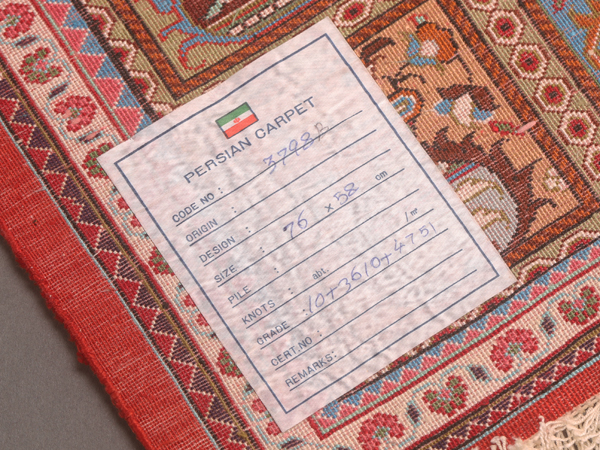 PERSIAN CARPET
CODE NO : 3798
ORIGIN :
DESIGN :
SIZE : 76 x 58 cm
PILE :
KNOTS : abt. /m²
GRADE : 10+3610+4751
CERT.NO :
REMARKS: